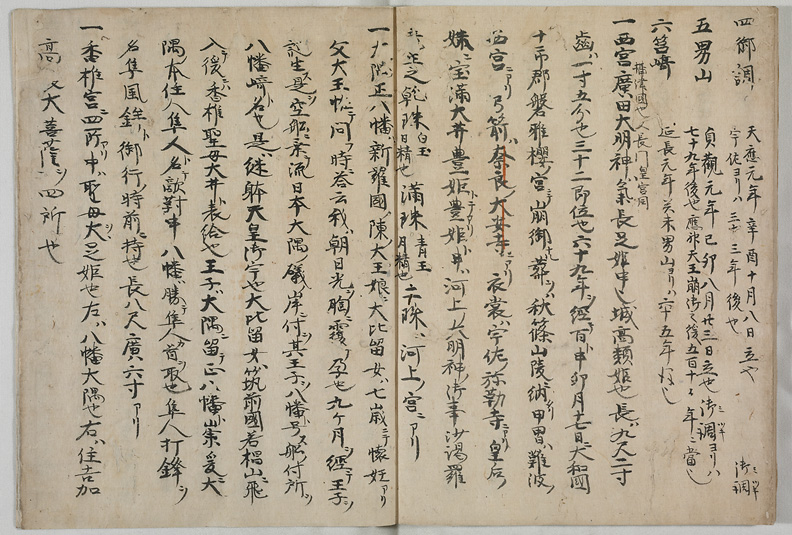 四御調 天應元年辛酉十月八日立也 御調
宇佐ヨリハ三十三年後也
五男山 貞觀元年己卯八月廿三日立也 御調ヨリハ
七十九年後也 應神天王崩御之後五百十 年ニ當也
六筥崎 延長元年 未男山ヨリハ六十五年 也
一西宮廣田大明神 氣長足姫申 城高額姫也長九尺二寸
播 國也人 長門皇宮同
齒一寸五分也三十二即位也六十九年經百 卯月十七日大和國
十市郡磐雅櫻宮崩御葬秋篠山陵納甲冑難波
西宮ニアリ弓箭奈良大安寺ニアリ衣裳宇佐弥勒寺ニアリ皇后
妹宝滿大井豊姫豊姫申河上大明神御事沙竭羅
正之乾珠白玉日精也滿珠青玉月精也二珠河上宮ニアリ
一大隅正八幡新羅國陳大王娘大比留女七歳ニテ懐妊アリ
父大王恠問時荅云我朝日光胸覆孕也九ケ月經王子
誕生是空船乘流日本大隅礒岸付其王子八幡号船付所
八幡崎名也是継躰天皇御宇也大比留女筑前國若椙山飛
入後香椎聖母大井表給也王子大隅留正八幡 崇爰大
隅本住人隼人名敵對申八幡勝隼人首取也隼人打鉾
名隼風鉾御行時前持也長八尺廣六寸アリ
一香椎宮四所申聖母大足姫也左八幡大隅也右住吉加
高 大菩薩四所也